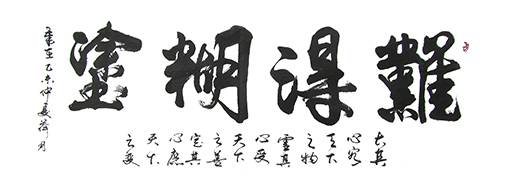 難得糊塗
大其
心容
天下
之物
虛其
心受
天下
之善
定其
心應
天下
之變
歲在乙未仲夏荷月